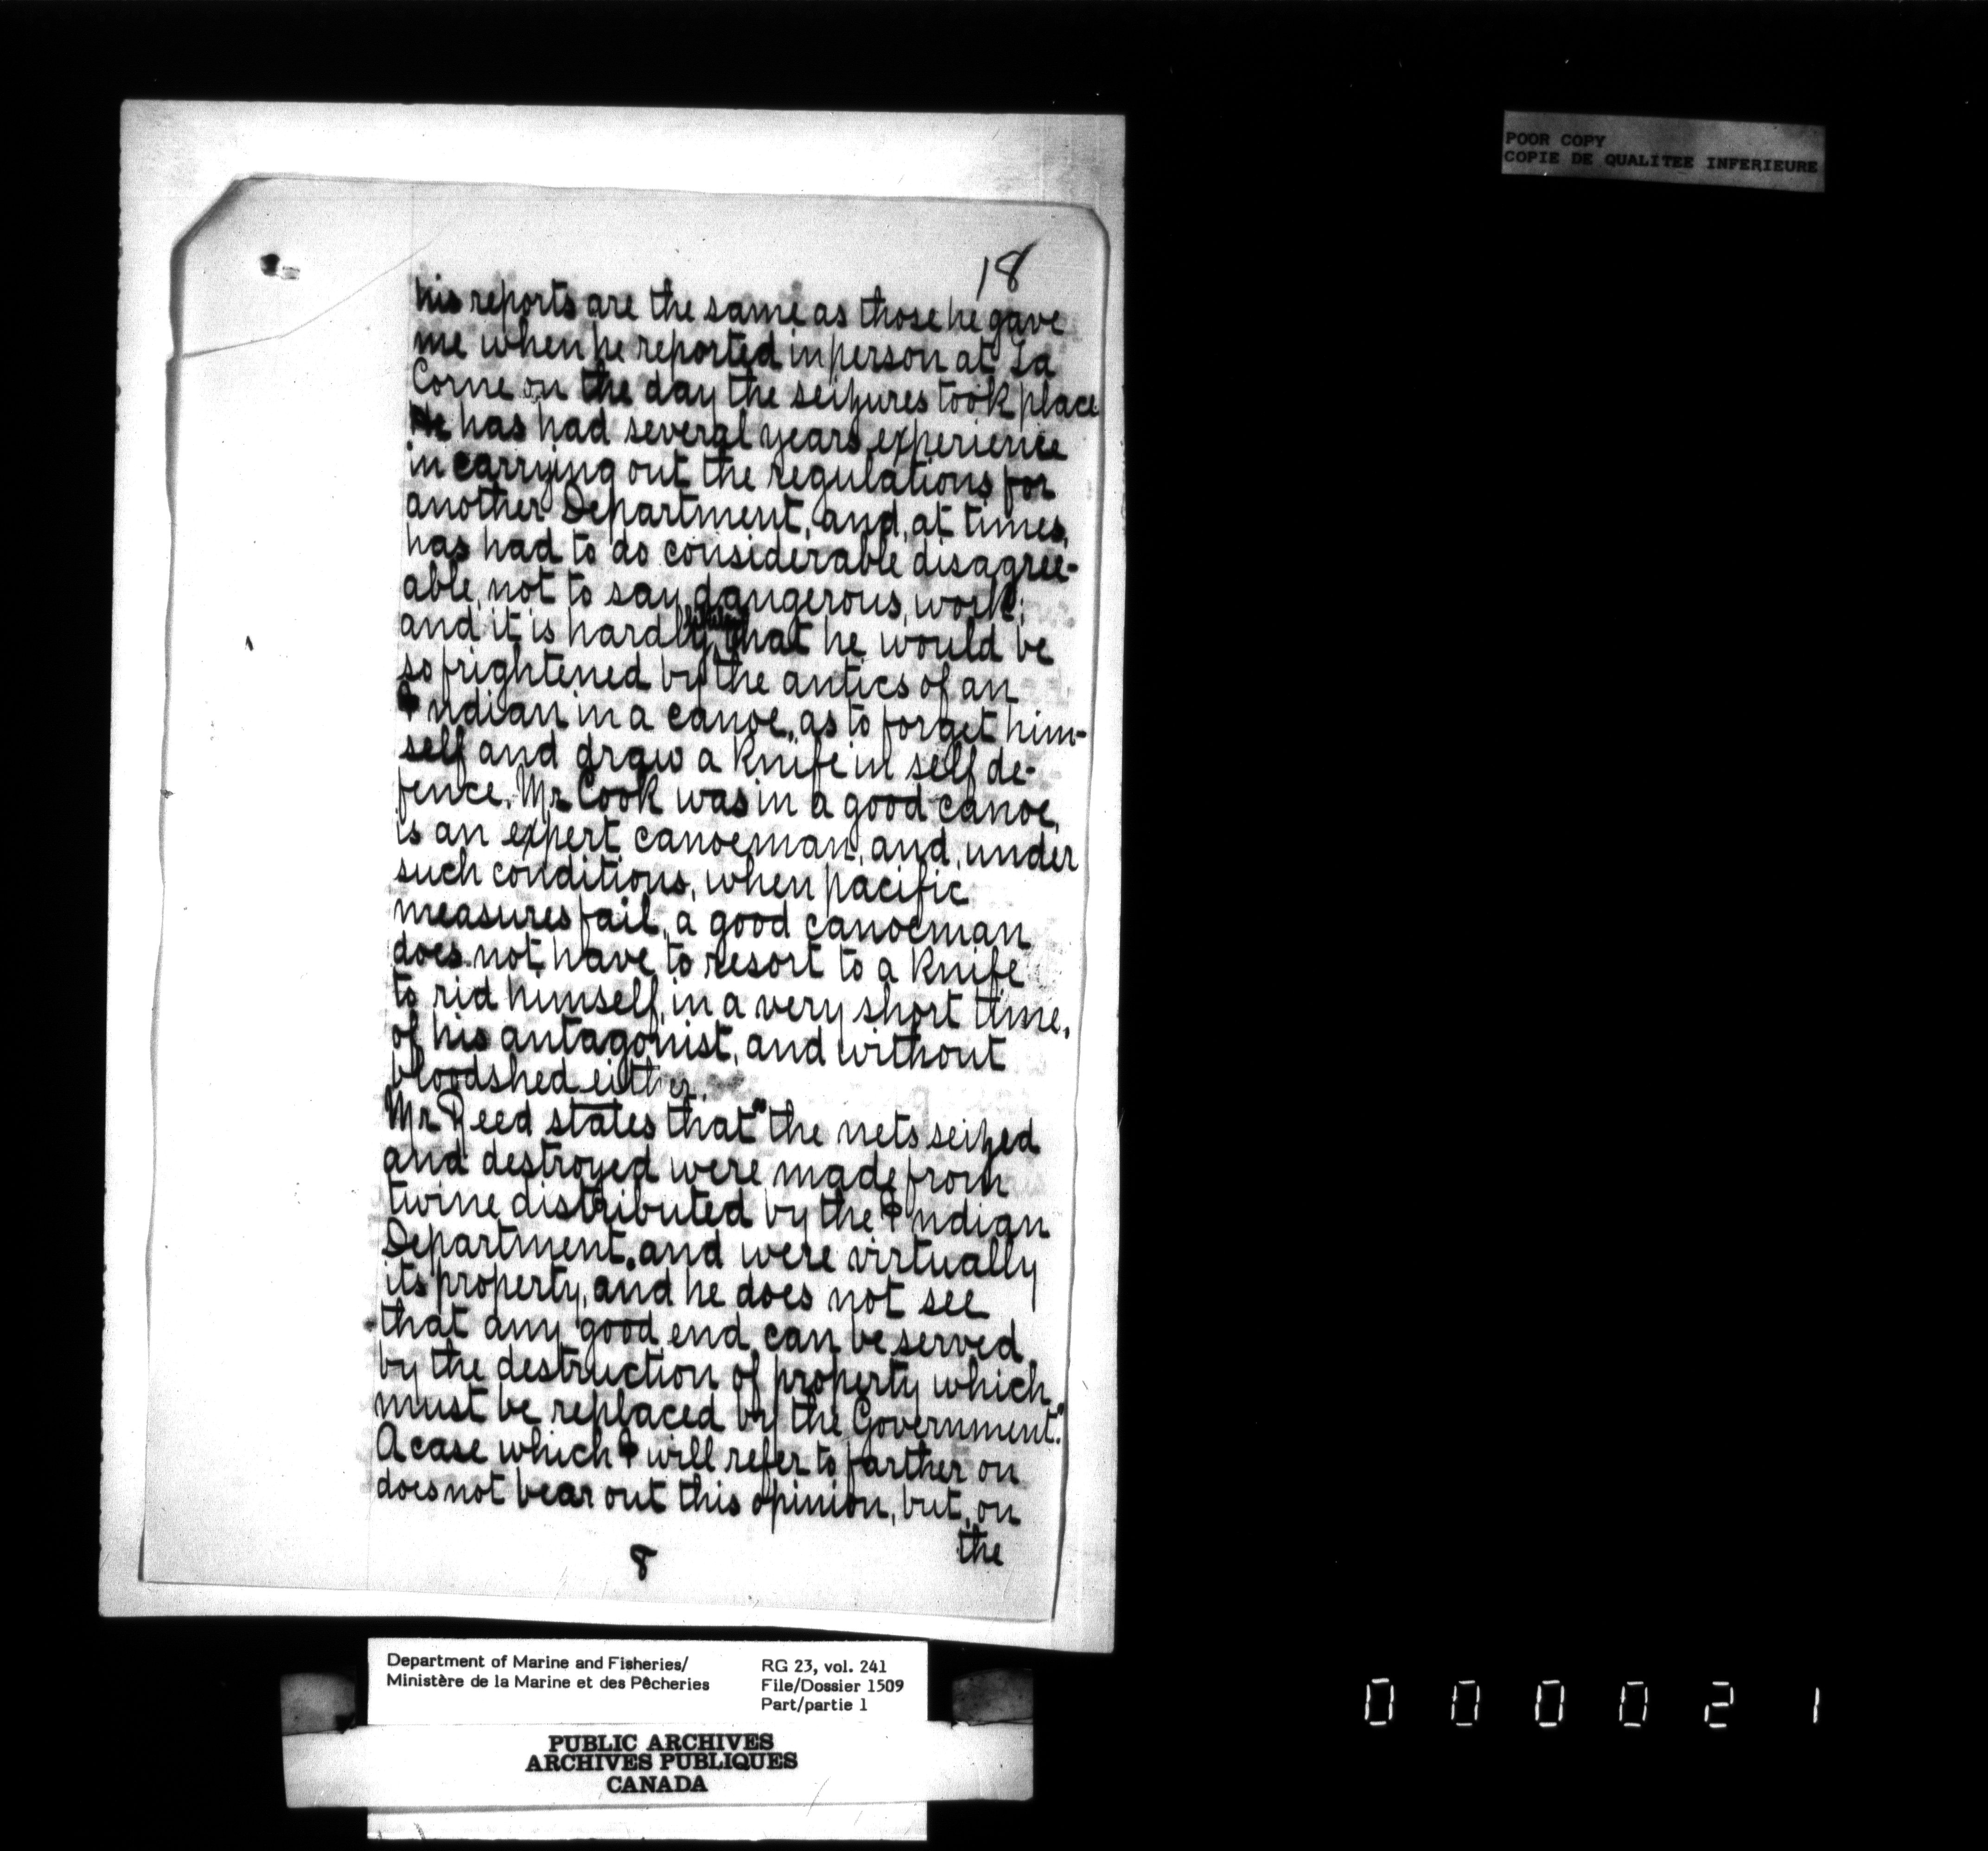 POOR COPY
COPIE DE QUALITEE INFERIEURE
18
his reports are the same as those he gave
me when he reported in person at La
Corne on the day the seizures took place
He has had several years experience
in carrying out the regulations for
another Department, and, at times,
has had to do considerable disagree-
able, not to say dangerous, work;
and it is hardly likely that he would be
so frightened by the antics of an
Indian in a canoe, as to forget him-
self and draw a knife in self de-
fence. Mr Cook was in a good canoe,
is an expert canoeman, and, under
such conditions, when pacific
measures fail, a good canoeman
does not have to resort to a knife
to rid himself, in a very short time,
of his antagonist, and without
bloodshed either.
Mr Reed states that "the nets seized
and destroyed were made from
twine distributed by the Indian
Department, and were virtually
its property, and he does not see
that any good end can be served
by the destruction of property which
must be replaced by the Government."
A case which I will refer to farther on
does not bear out this opinion, but, on
the
8
Department of Marine and Fisheries/
Ministère de la Marine et des Pêcheries
RG 23, vol. 241
File/Dossier 1509
Part/partie 1
PUBLIC ARCHIVES
ARCHIVES PUBLIQUES
CANADA
000021